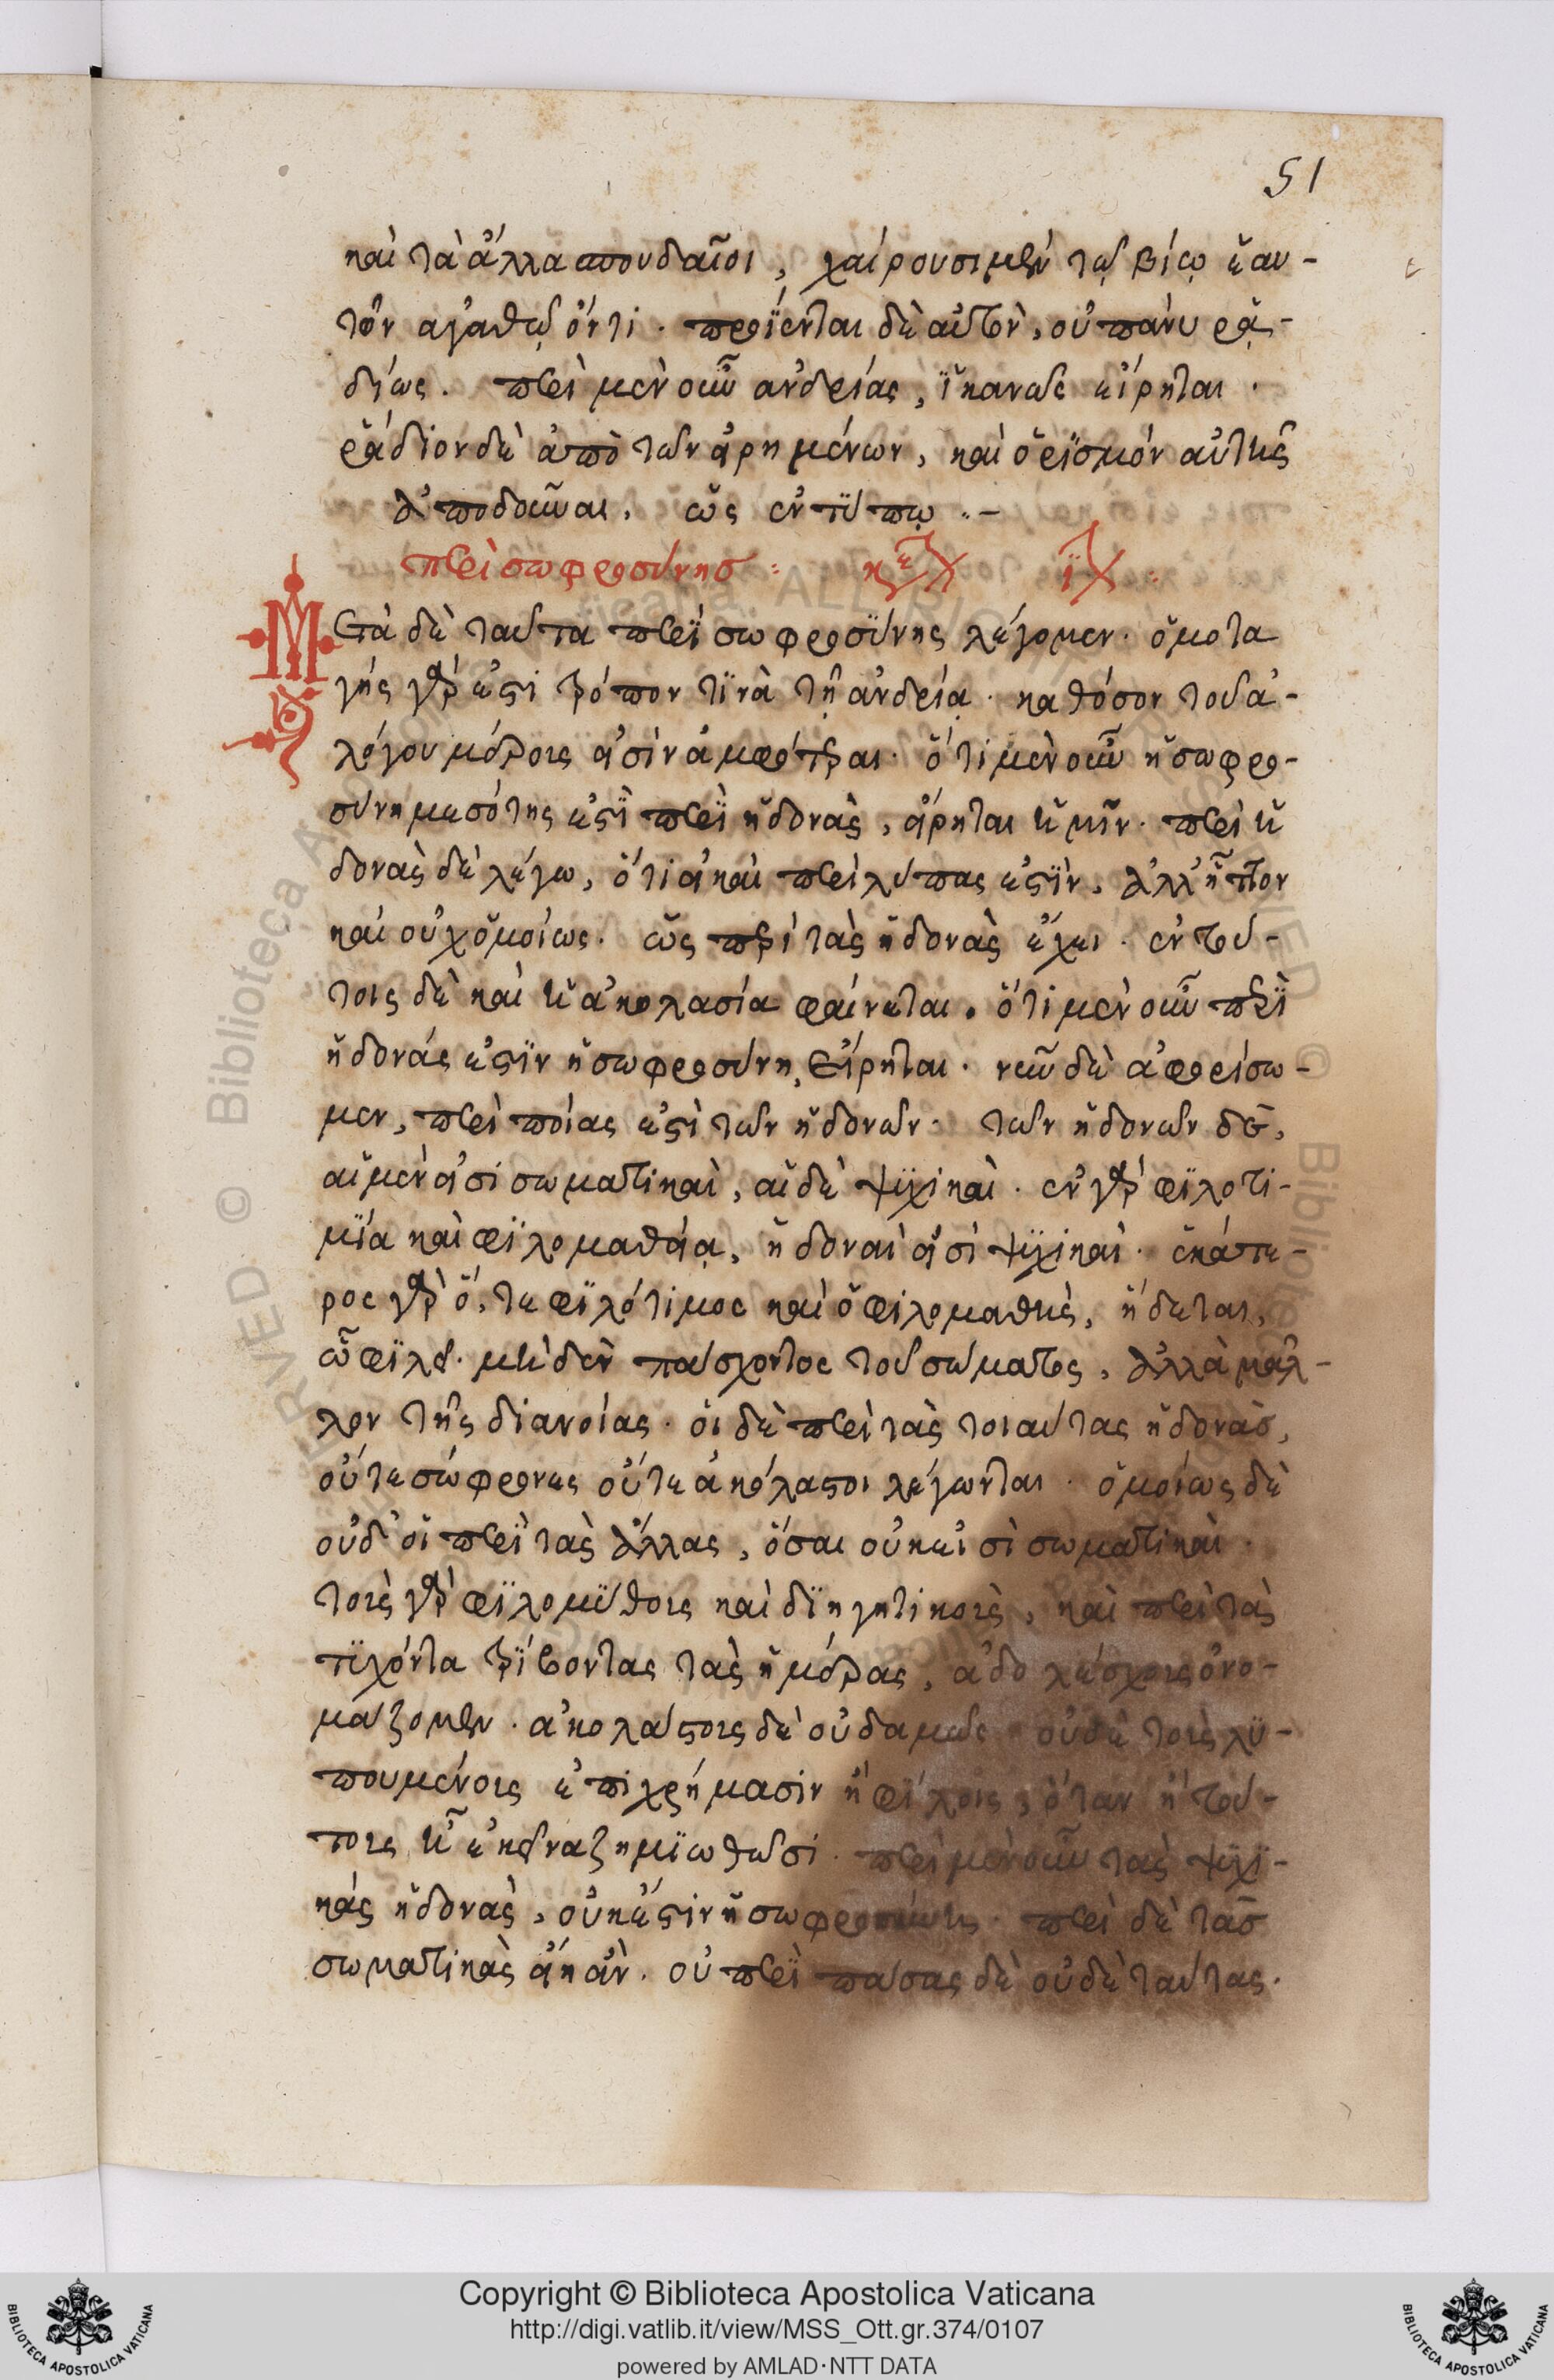 51
καὶ τὰ ἄλλα σπουδαῖοι, χαίρουσι μὲν τῷ βίῳ ἑαυ-
τῶν ἀγαθῷ ὄντι. προΐενται δὲ αὐτὸν, οὐ πάνυ ῥᾳ-
δίως. περὶ μὲν οὖν ανδρείας, ἱκανῶς εἴρηται.
ῥάδιον δὲ ἀπὸ τῶν εἰρημένων, καὶ ὁρισμόν αὐτῆς
ἀποδοῦναι. ὡς ἐν τύπῳ :-
περὶ σωφροσύνησ : κεχ ιχ :
Μετὰ δὲ ταῦτα περὶ σωφροσύνης λέγομεν. ὁμοτα
γής γάρ ἐστι τρόπον τινὰ τῇ ἀνδρείᾳ. καθόσον τοῦ ἀ-
λόγου μέροις εἰσὶν ἀμφότεραι. ὅτι μὲν οὖν ἡ σωφρο-
σύνη μεσότης ἐστὶ περὶ ἡδονὰς, εἴρηται ἡμῖν. περὶ ἡ
δονὰς δὲ λέγω, ὅτι εἰ καὶ περὶ λύπας ἐστὶν, ἀλλ' ἧττον
καὶ οὐχ ὁμοίως. ὡς περὶ τὰς ἡδονὰς ἔχει. ἐν τού-
τοις δὲ καὶ ἡ ἀκολασία φαίνεται. ὅτι μὲν οὖν περὶ
ἡδονάς ἐστιν ἡ σωφροσύνη, εἴρηται. νῦν δὲ ἀφορίσω-
μεν, περὶ ποίας ἐστὶ τῶν ἡδονῶν. τῶν ἡδονῶν δὲ,
αἱ μὲν εἰσι σωματικαὶ, αἱ δὲ ψυχικαὶ. ἐν γάρ φιλοτι-
μία καὶ φιλομαθείᾳ, ἡδοναὶ εἰσὶ ψυχικαὶ. ἑκάτε-
ρος γὰρ ὅ, τε φιλότιμος καὶ ὁ φιλομαθὴς, ἥδεται,
ὧ φιλεῖ. μὴ δὲν πάσχοντος τοῦ σώματος, ἀλλὰ μᾶλ-
λον τῆς διανοίας. οἱ δὲ περὶ τὰς τοιαύτας ἡδονάσ,
οὔτε σώφρονες οὔτε ἀκόλαστοι λέγωνται. ὁμοίως δὲ
οὐδ' οἱ περὶ τὰς ἄλλας, ὅσαι οὐκ εἰσὶ σωματικαὶ.
τοὶς γάρ φιλομύθοις καὶ διηγητικοὶς, καὶ περὶ τὰς
τυχόντα τρίβοντας τὰς ἡμέρας, ἀδολέσχοις ὀνο-
μάζομεν. ἀκολάστοις δὲ οὐδαμῶς οὐδὲ τοὶς λυ-
πουμένοις ἐπὶ χρήμασιν ἢ φίλοις, ὅταν ἢ τού-
τοις ἢ ἐκεῖνα ζημιωθῶσι. περὶ μὲν οὖν τὰς ψυχι-
κάς ἡδονὰς, οὐκ ἔστιν ἡ σωφροσύνης. περὶ δὲ τὰσ
σωματικὰς εἴη ἂν. οὐ περὶ πάσας δὲ οὐδὲ ταύτας.
Copyright © Biblioteca Apostolica Vaticana
http://digi.vatlib.it/view/MSS_Ott.gr.374/0107
powered by AMLAD·NTT DATA